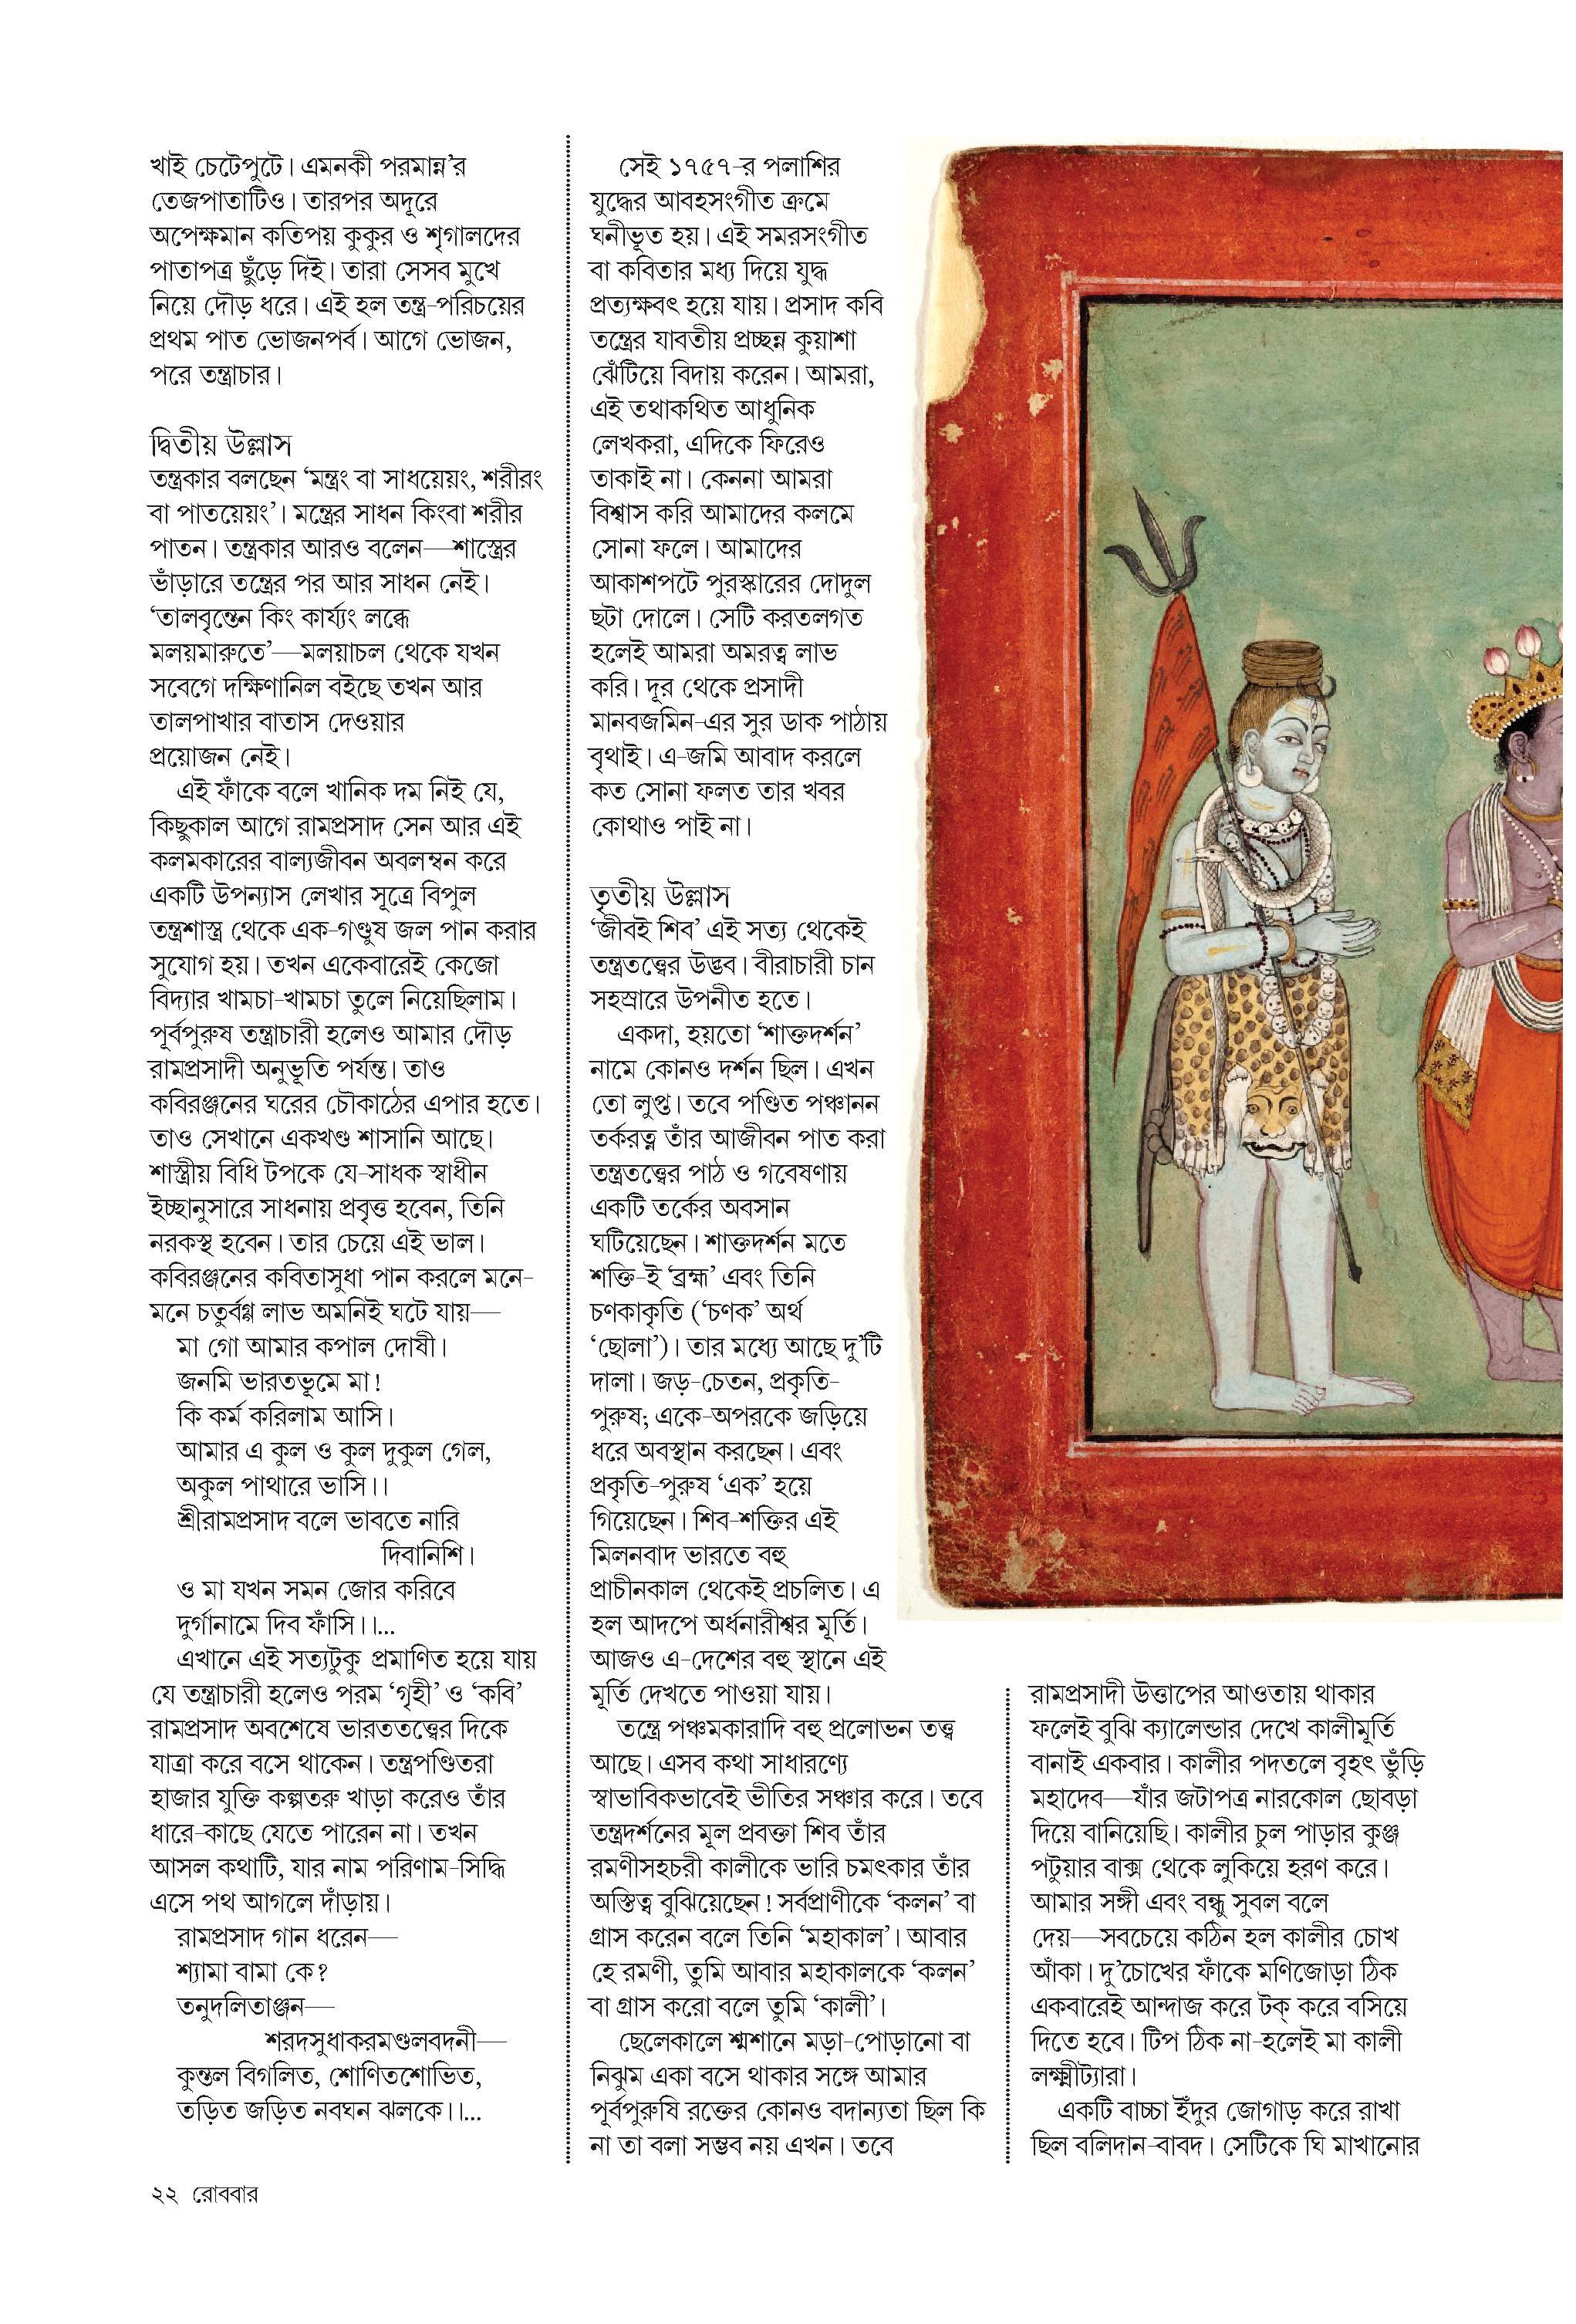 খাই চেটেপুটে। এমনকী পরমান্ন’র
তেজপাতাটিও। তারপর অদূরে
অপেক্ষমান কতিপয় কুকুর ও শৃগালদের
পাতাপত্র ছুঁড়ে দিই। তারা সেসব মুখে
নিয়ে দৌড় ধরে। এই হল তন্ত্র-পরিচয়ের
প্রথম পাত ভোজনপর্ব। আগে ভোজন,
পরে তন্ত্রাচার।
দ্বিতীয় উল্লাস
তন্ত্রকার বলছেন ‘মন্ত্রং বা সাধয়েয়ং, শরীরং
বা পাতয়েয়ং’। মন্ত্রের সাধন কিংবা শরীর
পাতন। তন্ত্রকার আরও বলেন—শাস্ত্রের
ভাঁড়ারে তন্ত্রের পর আর সাধন নেই।
‘তালবৃন্তেন কিং কার্য্যং লব্ধে
মলয়মারুতে’—মলয়াচল থেকে যখন
সবেগে দক্ষিণানিল বইছে তখন আর
তালপাখার বাতাস দেওয়ার
প্রয়োজন নেই।
এই ফাঁকে বলে খানিক দম নিই যে,
কিছুকাল আগে রামপ্রসাদ সেন আর এই
কলমকারের বাল্যজীবন অবলম্বন করে
একটি উপন্যাস লেখার সূত্রে বিপুল
তন্ত্রশাস্ত্র থেকে এক-গণ্ডুষ জল পান করার
সুযোগ হয়। তখন একেবারেই কেজো
বিদ্যার খামচা-খামচা তুলে নিয়েছিলাম।
পূর্বপুরুষ তন্ত্রাচারী হলেও আমার দৌড়
রামপ্রসাদী অনুভূতি পর্যন্ত। তাও
কবিরঞ্জনের ঘরের চৌকাঠের এপার হতে।
তাও সেখানে একখণ্ড শাসানি আছে।
শাস্ত্রীয় বিধি টপকে যে-সাধক স্বাধীন
ইচ্ছানুসারে সাধনায় প্রবৃত্ত হবেন, তিনি
নরকস্থ হবেন। তার চেয়ে এই ভাল।
কবিরঞ্জনের কবিতাসুধা পান করলে মনে-
মনে চতুর্বগ্গ লাভ অমনিই ঘটে যায়—
মা গো আমার কপাল দোষী।
জনমি ভারতভূমে মা!
কি কর্ম করিলাম আসি।
আমার এ কুল ও কুল দুকুল গেল,
অকুল পাথারে ভাসি।।
শ্রীরামপ্রসাদ বলে ভাবতে নারি
দিবানিশি।
ও মা যখন সমন জোর করিবে
দুর্গানামে দিব ফাঁসি।।...
এখানে এই সত্যটুকু প্রমাণিত হয়ে যায়
যে তন্ত্রাচারী হলেও পরম ‘গৃহী’ ও ‘কবি’
রামপ্রসাদ অবশেষে ভারততত্ত্বের দিকে
যাত্রা করে বসে থাকেন। তন্ত্রপণ্ডিতরা
হাজার যুক্তি কল্পতরু খাড়া করেও তাঁর
ধারে-কাছে যেতে পারেন না। তখন
আসল কথাটি, যার নাম পরিণাম-সিদ্ধি
এসে পথ আগলে দাঁড়ায়।
রামপ্রসাদ গান ধরেন—
শ্যামা বামা কে?
তনুদলিতাঞ্জন—
শরদসুধাকরমণ্ডলবদনী—
কুন্তল বিগলিত, শোণিতশোভিত,
তড়িত জড়িত নবঘন ঝলকে।।...
সেই ১৭৫৭-র পলাশির
যুদ্ধের আবহসংগীত ক্রমে
ঘনীভূত হয়। এই সমরসংগীত
বা কবিতার মধ্য দিয়ে যুদ্ধ
প্রত্যক্ষবৎ হয়ে যায়। প্রসাদ কবি
তন্ত্রের যাবতীয় প্রচ্ছন্ন কুয়াশা
ঝেঁটিয়ে বিদায় করেন। আমরা,
এই তথাকথিত আধুনিক
লেখকরা, এদিকে ফিরেও
তাকাই না। কেননা আমরা
বিশ্বাস করি আমাদের কলমে
সোনা ফলে। আমাদের
আকাশপটে পুরস্কারের দোদুল
ছটা দোলে। সেটি করতলগত
হলেই আমরা অমরত্ব লাভ
করি। দূর থেকে প্রসাদী
মানবজমিন-এর সুর ডাক পাঠায়
বৃথাই। এ-জমি আবাদ করলে
কত সোনা ফলত তার খবর
কোথাও পাই না।
তৃতীয় উল্লাস
‘জীবই শিব’ এই সত্য থেকেই
তন্ত্রতত্ত্বের উদ্ভব। বীরাচারী চান
সহস্রারে উপনীত হতে।
একদা, হয়তো ‘শাক্তদর্শন’
নামে কোনও দর্শন ছিল। এখন
তো লুপ্ত। তবে পণ্ডিত পঞ্চানন
তর্করত্ন তাঁর আজীবন পাত করা
তন্ত্রতত্ত্বের পাঠ ও গবেষণায়
একটি তর্কের অবসান
ঘটিয়েছেন। শাক্তদর্শন মতে
শক্তি-ই ‘ব্রহ্ম’ এবং তিনি
চণকাকৃতি (‘চণক’ অর্থ
‘ছোলা’)। তার মধ্যে আছে দু’টি
দালা। জড়-চেতন, প্রকৃতি-
পুরুষ; একে-অপরকে জড়িয়ে
ধরে অবস্থান করছেন। এবং
প্রকৃতি-পুরুষ ‘এক’ হয়ে
গিয়েছেন। শিব-শক্তির এই
মিলনবাদ ভারতে বহু
প্রাচীনকাল থেকেই প্রচলিত। এ
হল আদপে অর্ধনারীশ্বর মূর্তি।
আজও এ-দেশের বহু স্থানে এই
মূর্তি দেখতে পাওয়া যায়।
তন্ত্রে পঞ্চমকারাদি বহু প্রলোভন তত্ত্ব
আছে। এসব কথা সাধারণ্যে
স্বাভাবিকভাবেই ভীতির সঞ্চার করে। তবে
তন্ত্রদর্শনের মূল প্রবক্তা শিব তাঁর
রমণীসহচরী কালীকে ভারি চমৎকার তাঁর
অস্তিত্ব বুঝিয়েছেন! সর্বপ্রাণীকে ‘কলন’ বা
গ্রাস করেন বলে তিনি ‘মহাকাল’। আবার
হে রমণী, তুমি আবার মহাকালকে ‘কলন’
বা গ্রাস করো বলে তুমি ‘কালী’।
ছেলেকালে শ্মশানে মড়া-পোড়ানো বা
নিঝুম একা বসে থাকার সঙ্গে আমার
পূর্বপুরুষি রক্তের কোনও বদান্যতা ছিল কি
না তা বলা সম্ভব নয় এখন। তবে
রামপ্রসাদী উত্তাপের আওতায় থাকার
ফলেই বুঝি ক্যালেন্ডার দেখে কালীমূর্তি
বানাই একবার। কালীর পদতলে বৃহৎ ভুঁড়ি
মহাদেব—যাঁর জটাপত্র নারকোল ছোবড়া
দিয়ে বানিয়েছি। কালীর চুল পাড়ার কুঞ্জ
পটুয়ার বাক্স থেকে লুকিয়ে হরণ করে।
আমার সঙ্গী এবং বন্ধু সুবল বলে
দেয়—সবচেয়ে কঠিন হল কালীর চোখ
আঁকা। দু’চোখের ফাঁকে মণিজোড়া ঠিক
একবারেই আন্দাজ করে টক্ করে বসিয়ে
দিতে হবে। টিপ ঠিক না-হলেই মা কালী
লক্ষ্মীট্যারা।
একটি বাচ্চা ইঁদুর জোগাড় করে রাখা
ছিল বলিদান-বাবদ। সেটিকে ঘি মাখানোর
২২ রোববার